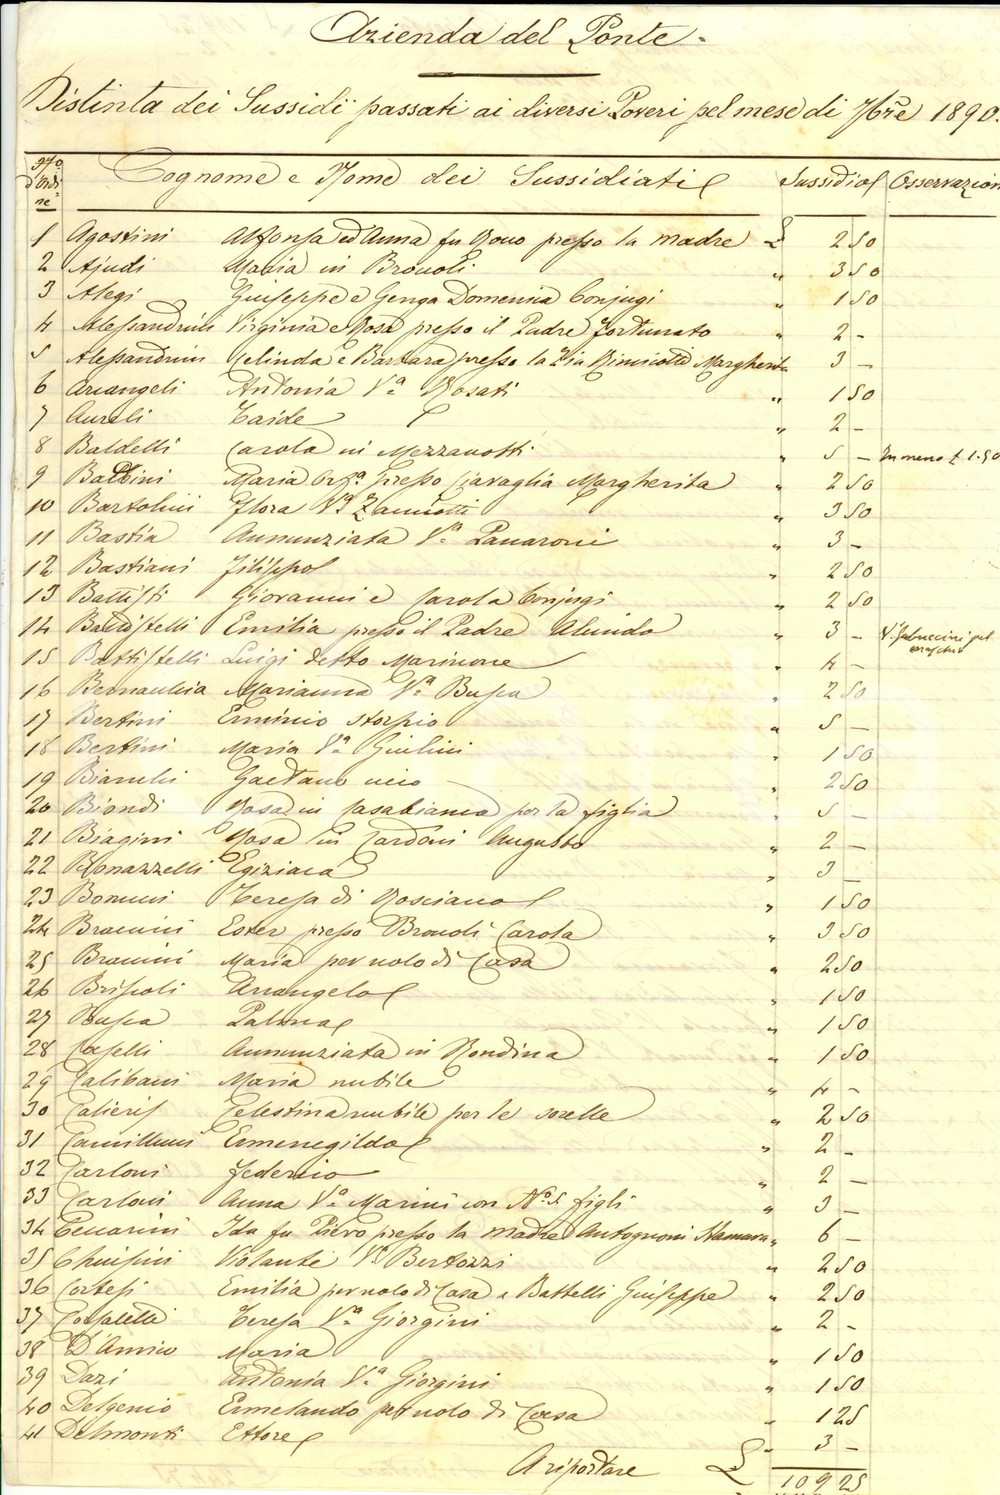 Azienda del Ponte.
Distinta dei Sussidii passati ai diversi Poveri pel mese di 7bre 1890.
No. d'Ordine Cognome e Nome dei Sussidiati Sussidio Osservazioni
1 Agostini Alfonsa ed Anna fu Romo presso la madre £ 2 50
2 Ajudi Maria in Bronoli " 3 50
3 Alegi Giuseppe e Genga Domenica Conjugi " 1 50
4 Alessandrini Virginia e Rosa presso il Padre Fortunato " 2 -
5 Alessandrini Celinda e Barbara presso la Zia Margherita " 3 -
6 Arcangeli Antonia Va. Rosati " 1 50
7 Aureli Taide " 2 -
8 Baldelli Carola in Mezzanotti " 5 - In meno £ 1.50
9 Balbini Maria presso Ciavaglia Margherita " 2 50
10 Bartolini Flora Va. " 3 50
11 Bastia Annunziata Va. Panaroni " 3 -
12 Bastiani Filippo " 2 50
13 Battisti Giovanni e Carola Conjugi " 2 50
14 Battistelli Emilia presso il Padre " 3 -
15 Battistelli Luigi detto Marinone " 4 -
16 Marianna Va. Busca " 2 50
17 Bertini Erminio storpio " 5 -
18 Bertini Maria Va. Giulini " 1 50
19 Bianchi Gaetano " 2 50
20 Biondi Rosa in Casabianca per la figlia " 5 -
21 Biagini Rosa in Cardoni Augusto " 2 -
22 Bonazzelli Egiziaca " 3 -
23 Bonini Teresa di Rosciano " 1 50
24 Bracini Ester presso Bronoli Carola " 3 50
25 Bracini Maria per nolo di Casa " 2 50
26 Briscoli Arcangelo " 1 50
27 Busca Palma " 1 50
28 Caselli Annunziata in Rondina " 1 50
29 Calibani Maria nubile " 4 -
30 Celestina nubile per le sorelle " 2 50
31 Camilluni Ermenegildo " 2 -
32 Carloni Federico " 2 -
33 Carloni Anna Va. Marini con No. 5 figli " 3 -
34 Ceccarini Ida fu Piero presso la madre Antognoni " 6 -
35 Violante Va. Bertozzi " 2 50
36 Cortesi Emilia per nolo di Casa a Battelli Giuseppe " 2 50
37 Teresa Va. Giorgini " 2 -
38 D'Amico Maria " 1 50
39 Dazi Antonia Va. Giorgini " 1 50
40 Delgenio Ermelando per nolo di Casa " 1 25
41 Delmonti Ettore " 3 -
A riportare £ 109 25